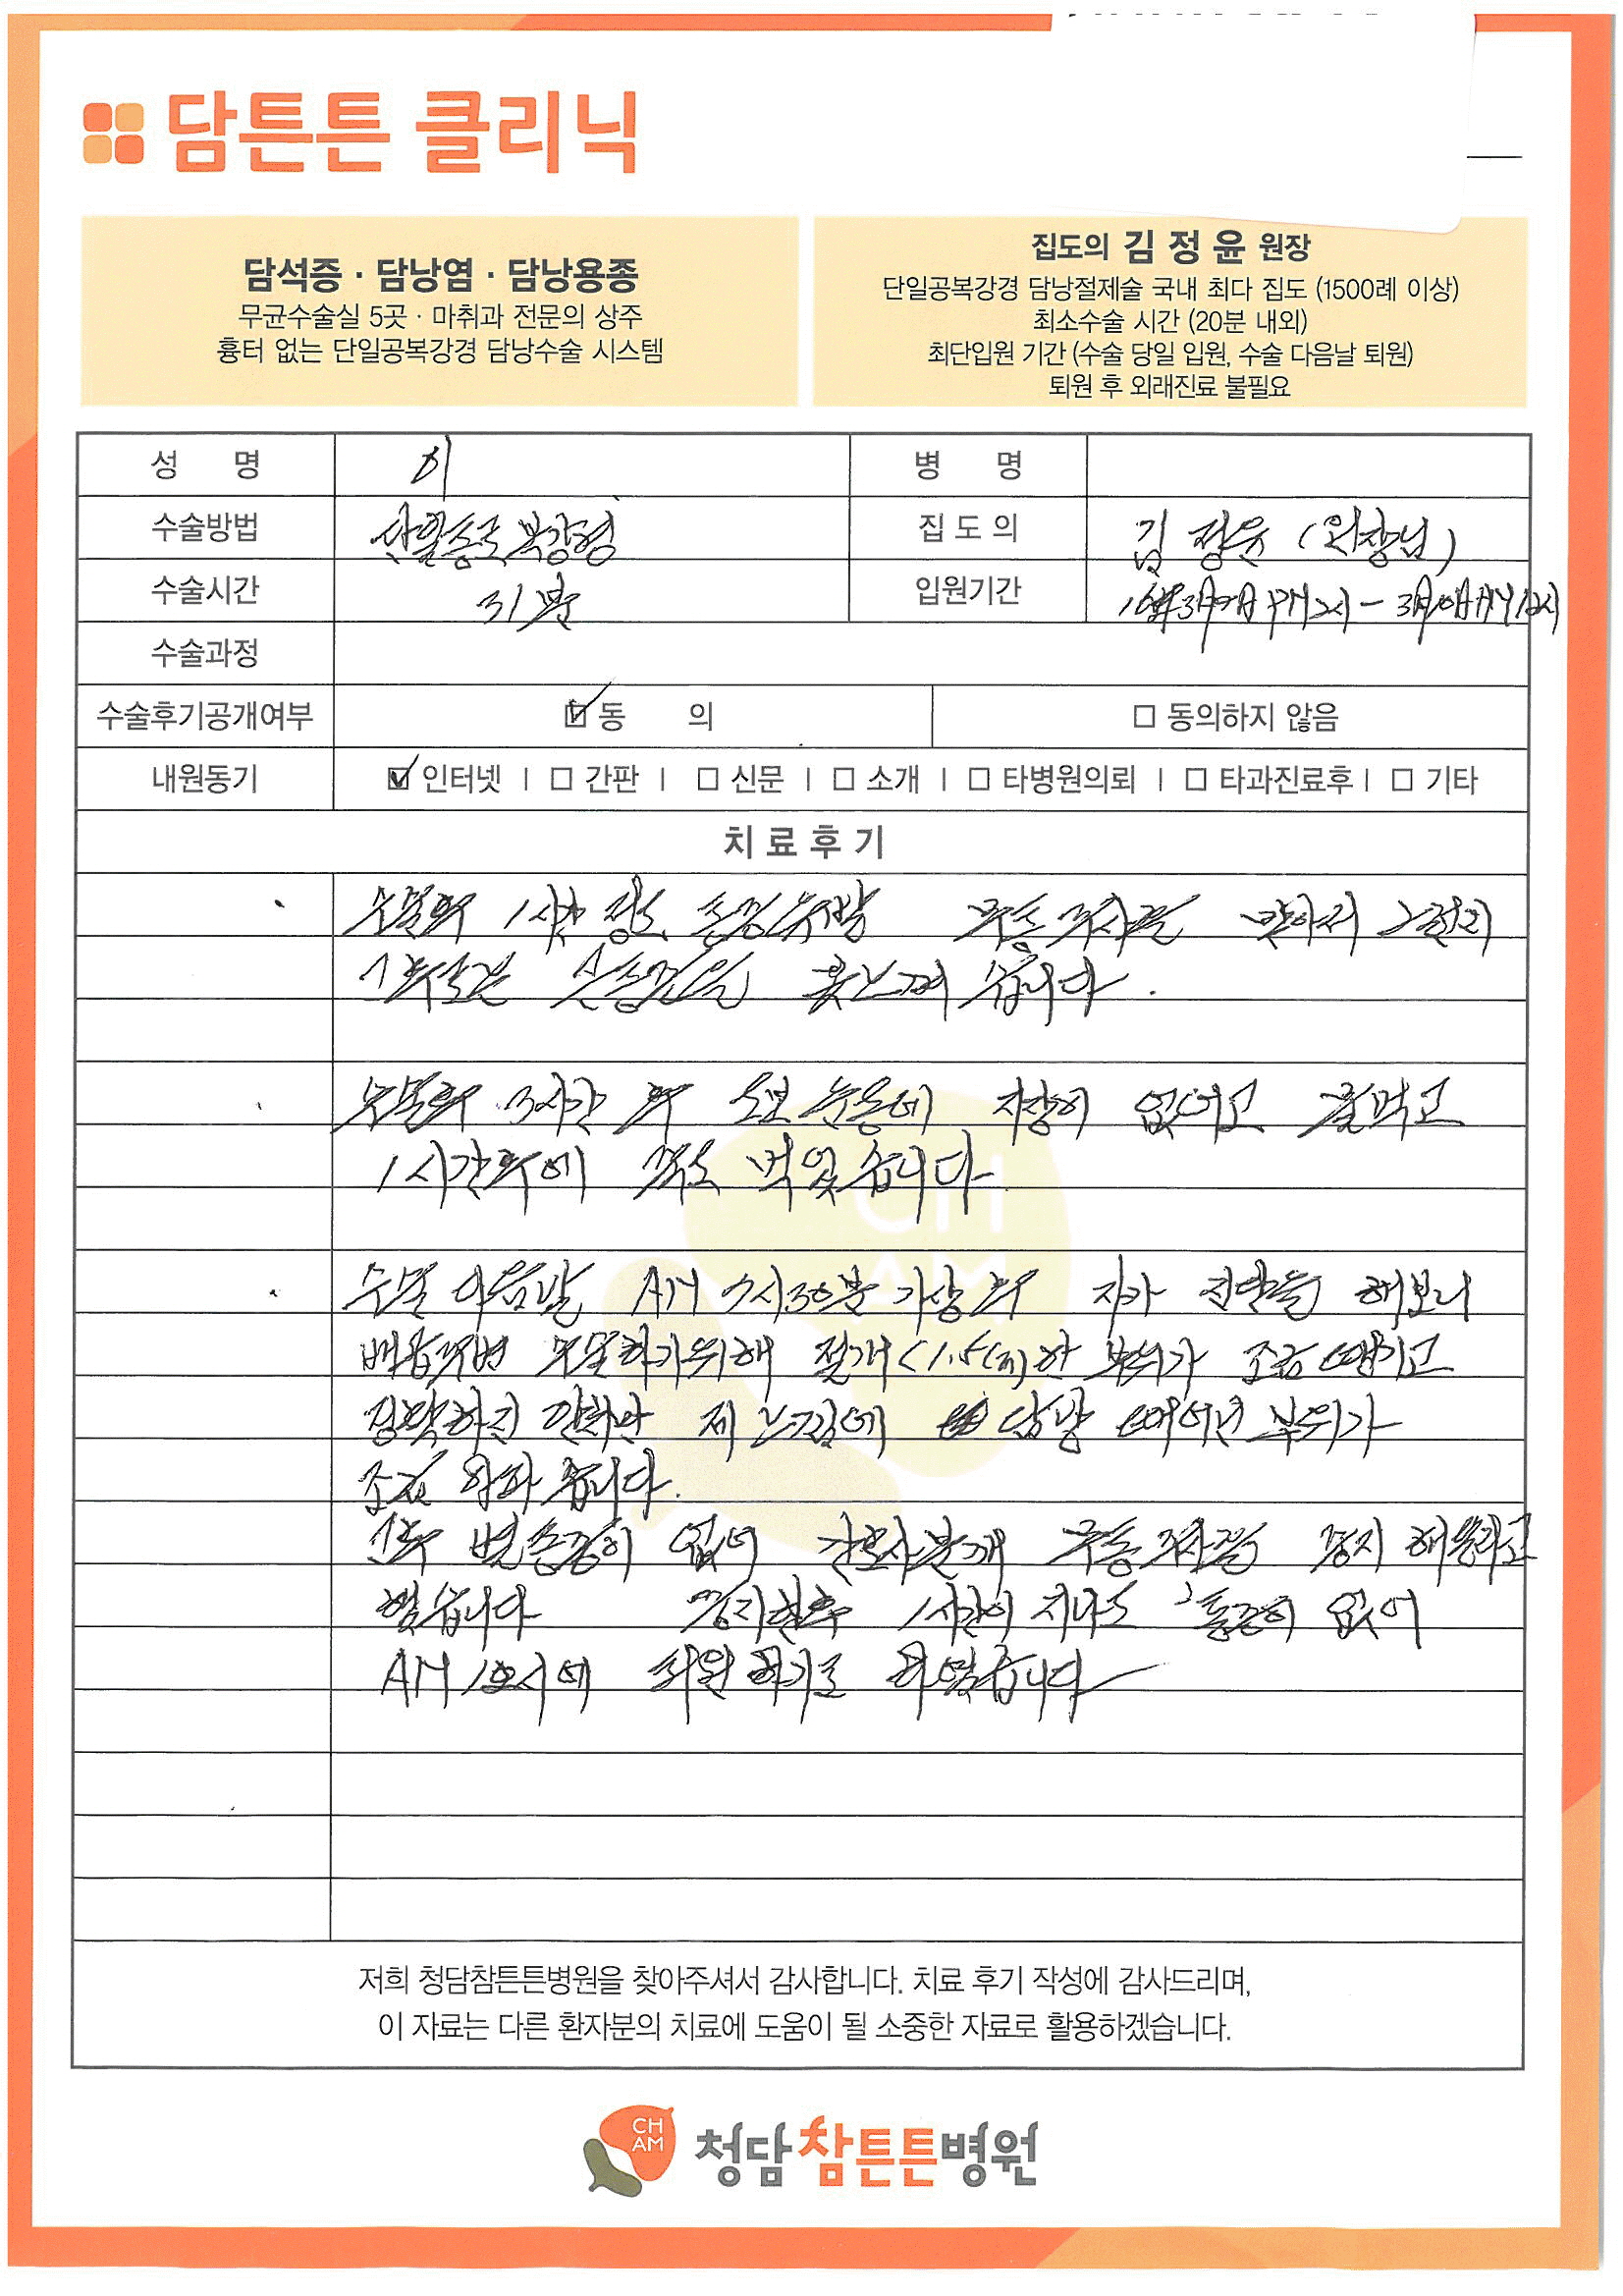 담튼튼 클리닉
담석증 · 담낭염 · 담낭용종
무균수술실 5곳 · 마취과 전문의 상주
흉터 없는 단일공복강경 담낭수술 시스템
집도의 김정윤 원장
단일공복강경 담낭절제술 국내 최다 집도 (1500례 이상)
최소수술 시간 (20분 내외)
최단입원 기간 (수술 당일 입원, 수술 다음날 퇴원)
퇴원 후 외래진료 불필요
성 명 이 병 명
수술방법 복강경 집도의 김정윤 (원장님)
수술시간 31분 입원기간
수술과정
수술후기공개여부 ☑ 동 의 □ 동의하지 않음
내원동기 ☑ 인터넷 | □ 간판 | □ 신문 | □ 소개 | □ 타병원의뢰 | □ 타과진료후 | □ 기타
치료후기
수술후 1시간 정도 무통주사를
못느껴 습니다.
수술후 3시간 후 도보 운동에 지장이 없었고 물먹고
1시간후에 죽도 먹었습니다.
수술 다음날 AM 7시30분 기상후 자가 진단을 해보니
배꼽주변 수술하기위해 절개 <1.5cm)한 부위가 조금 땡기고
정확하진 않치만 제 느낌에 담낭 떼어낸 부위가
조금 아파습니다.
통증이 없어 간호사분께 무통주사를 중지 해달라고
했습니다 중지한후 1시간이 지나도 통증이 없어
AM 10시에 퇴원 하기로 하였습니다
저희 청담참튼튼병원을 찾아주셔서 감사합니다. 치료 후기 작성에 감사드리며,
이 자료는 다른 환자분의 치료에 도움이 될 소중한 자료로 활용하겠습니다.
CH
AM
청담참튼튼병원